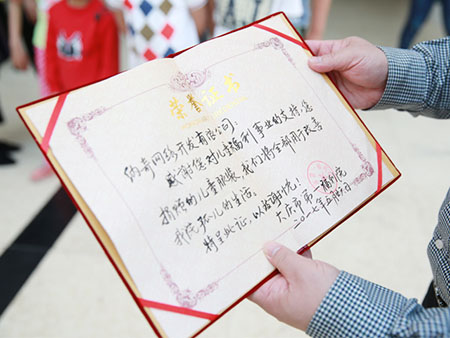 荣誉证书
纳奇网络开发有限公司：
感谢您对儿童福利事业的支持，您
捐赠的儿童服装，我们将全部用于改善
我院孤儿的生活。
特呈此证，以致谢忱。
大庆市第一福利院
二〇一七年五月